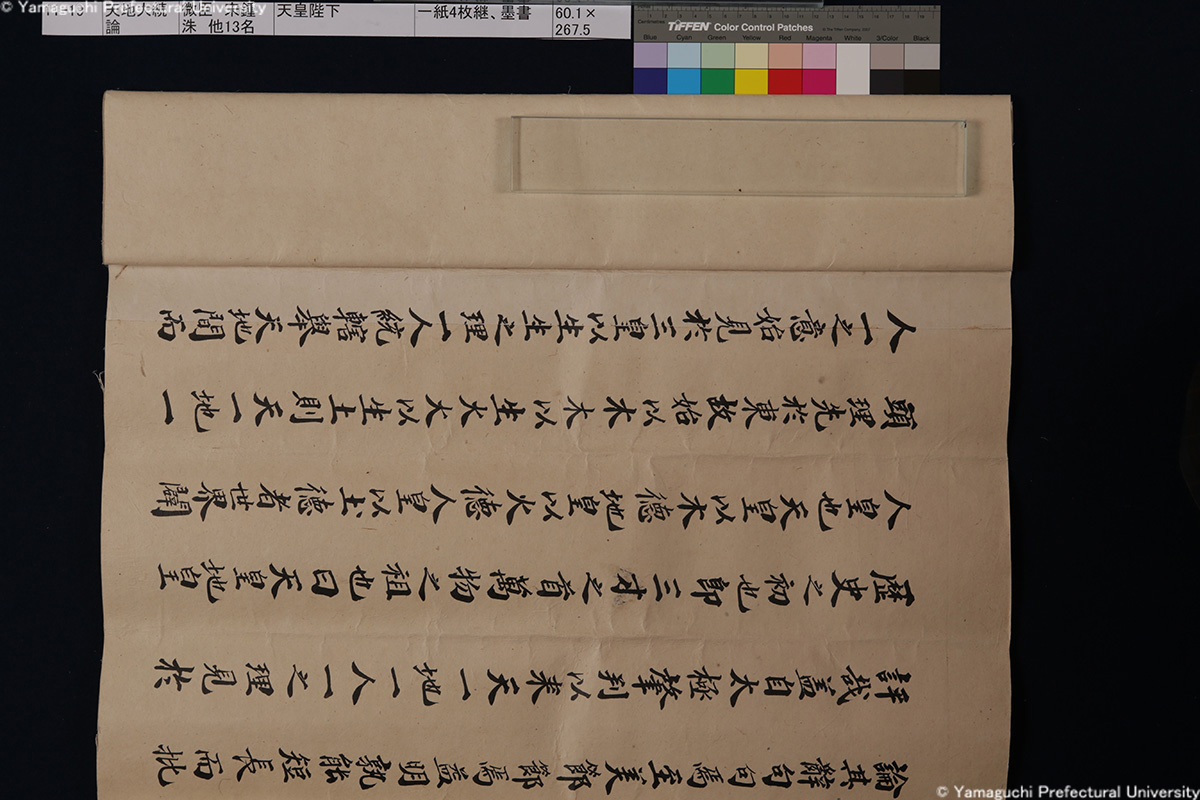 © Yamaguchi Prefectural University
論
洙 他13名
天皇陛下
一紙4枚継、墨書
60.1×
267.5
TIFFEN Color Control Patches
Blue Cyan Green Yellow Red Magenta White 3/Color Black
論其辭句句焉至美節節焉益明能就短長而批
評哉蓋自太極肇判以来天一地一人一之理見於
歷史之初也即三才之首萬物之祖也曰天皇地皇
人皇也天皇以木徳地皇以火徳人皇以土徳者世界闢
頭理先於東故始以木木以生火火以生土則天一地一
人一之意始見於三皇以生生之理一人統轄與天地間而
© Yamaguchi Prefectural University